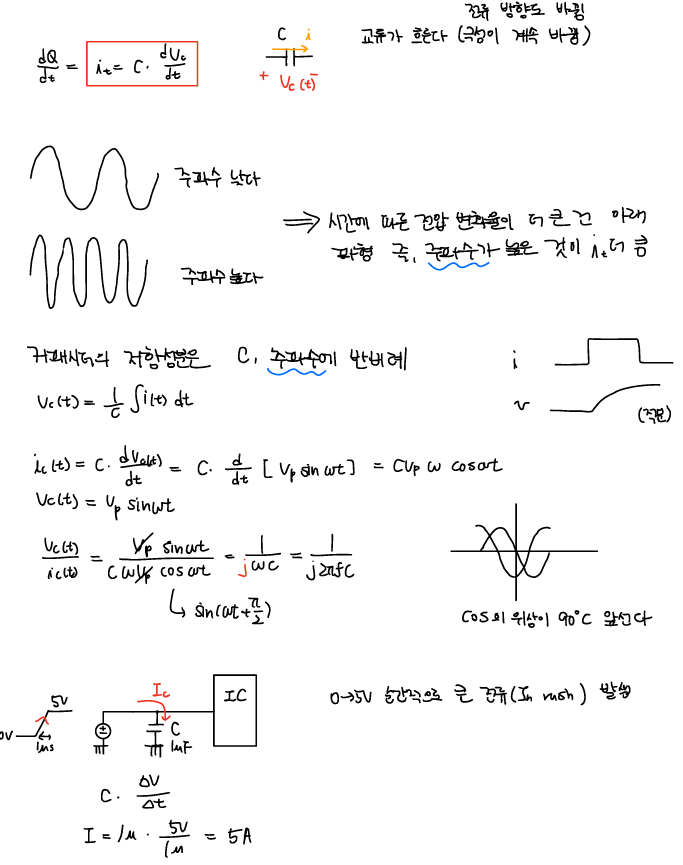 전류 방향도 바뀜
교류가 흐른다 (극성이 계속 바뀜)
dQ/dt = i_t = C · dV_c/dt
C i
+ V_c(t) −
주파수 낮다
주파수 높다
⇒ 시간에 따른 전압 변화율이 더 큰 건 아래
파형 즉, 주파수가 높은 것이 i_t 더 큼
커패시터의 저항성분은 C, 주파수에 반비례
V_c(t) = 1/C ∫i(t) dt
i
v
(적분)
i_c(t) = C · dV_c(t)/dt = C · d/dt [V_p sin ωt] = CV_p ω cos ωt
V_c(t) = V_p sin ωt
V_c(t)/i_c(t) = V_p sin ωt / C ω V_p cos ωt = 1/jωC = 1/j2πfC
sin(ωt + π/2)
cos의 위상이 90°C 앞선다
0V 5V 1μs
I_c
IC
C
1μF
0→5V 순간적으로 큰 전류 (In rush) 발생
C · ΔV/Δt
I = 1μ · 5V/1μ = 5A